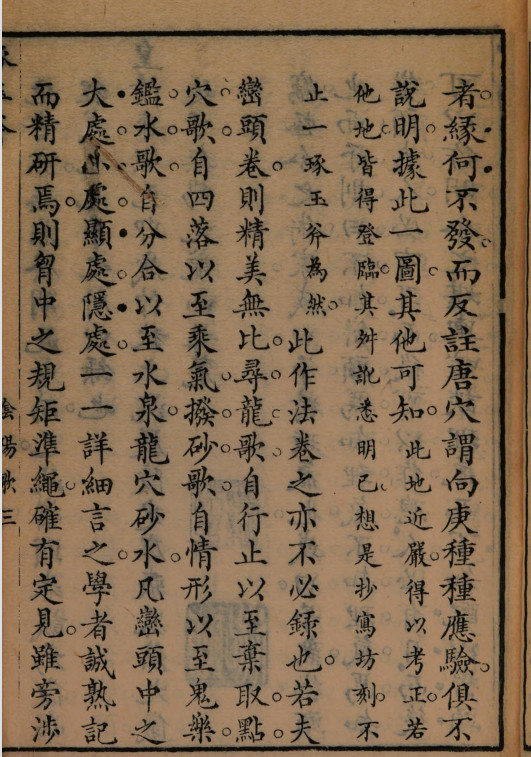 者緣何不發而反註唐穴謂向庚種種應驗俱不
說明據此一圖其他可知此地近嚴得以考正若
他地皆得登臨其舛訛悉明已想是抄寫坊刻不
止一琢玉斧為然此作法卷之亦不必錄也若夫
巒頭卷則精美無比尋龍歌自行止以至棄取點
穴歌自四落以至乘氣撥砂歌自情形以至鬼樂
鑑水歌自分合以至水泉龍穴砂水凡巒頭中之
大處小處顯處隱處一一詳細言之學者誠熟記
而精研焉則胷中之規矩準繩確有定見雖旁涉
三